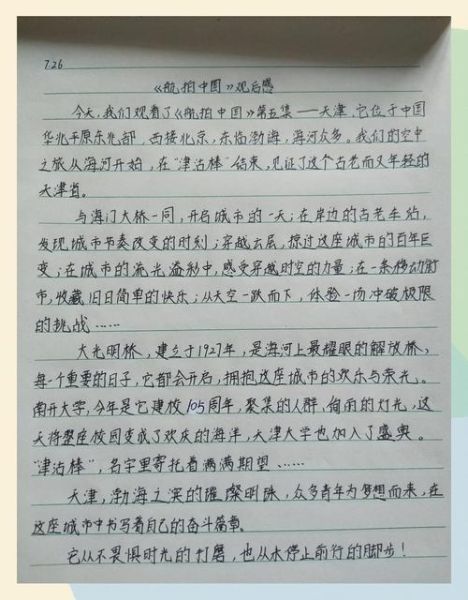 7.26
《航拍中国》观后感
今天,我们观看了《航拍中国》第五集——天津,它位于中国
华北平原东北部,西接北京,东临渤海,海河众多。我们的空中
之旅从海河开始,在"津沽棒"结束,见证了这个古老而又年轻的
天津省。
与海门大桥一同,开启城市的一天;在岸边的古老车站,
发现城市节奏改变的时刻;穿越云层,掠过这座城市的百年巨
变;在城市的流光溢彩中,感受穿越时空的力量;在一条移动的
市,收藏旧日简单的快乐;从天空一跃而下,体验一场冲破极限
的挑战……
大光明桥,建立于1927年,是海河上最耀眼的解放桥,
每一个重要的日子,它都会开启,拥抱这座城市的欢乐与荣光。
南开大学,今年是它建校105周年,聚集的人群,绚丽的灯光,这
天将整座校园变成了欢庆的海洋,天津大学也加入了盛典。
"津沽棒",名字里寄托着满满期望……
天津,渤海之滨的璀璨明珠,众多青年为梦想而来,在
这座城市中书写着自己的奋斗篇章。
它从不畏惧时光的打磨,也从未停止前行的脚步!